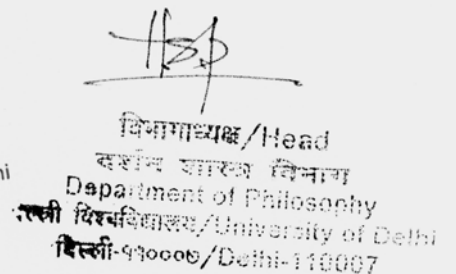 विभागाध्यक्ष/Head
दर्शन शास्त्र विभाग
hi
Department of Philosophy
विश्वविद्यालय/University of Delhi
दिल्ली-११०००७/Delhi-110007